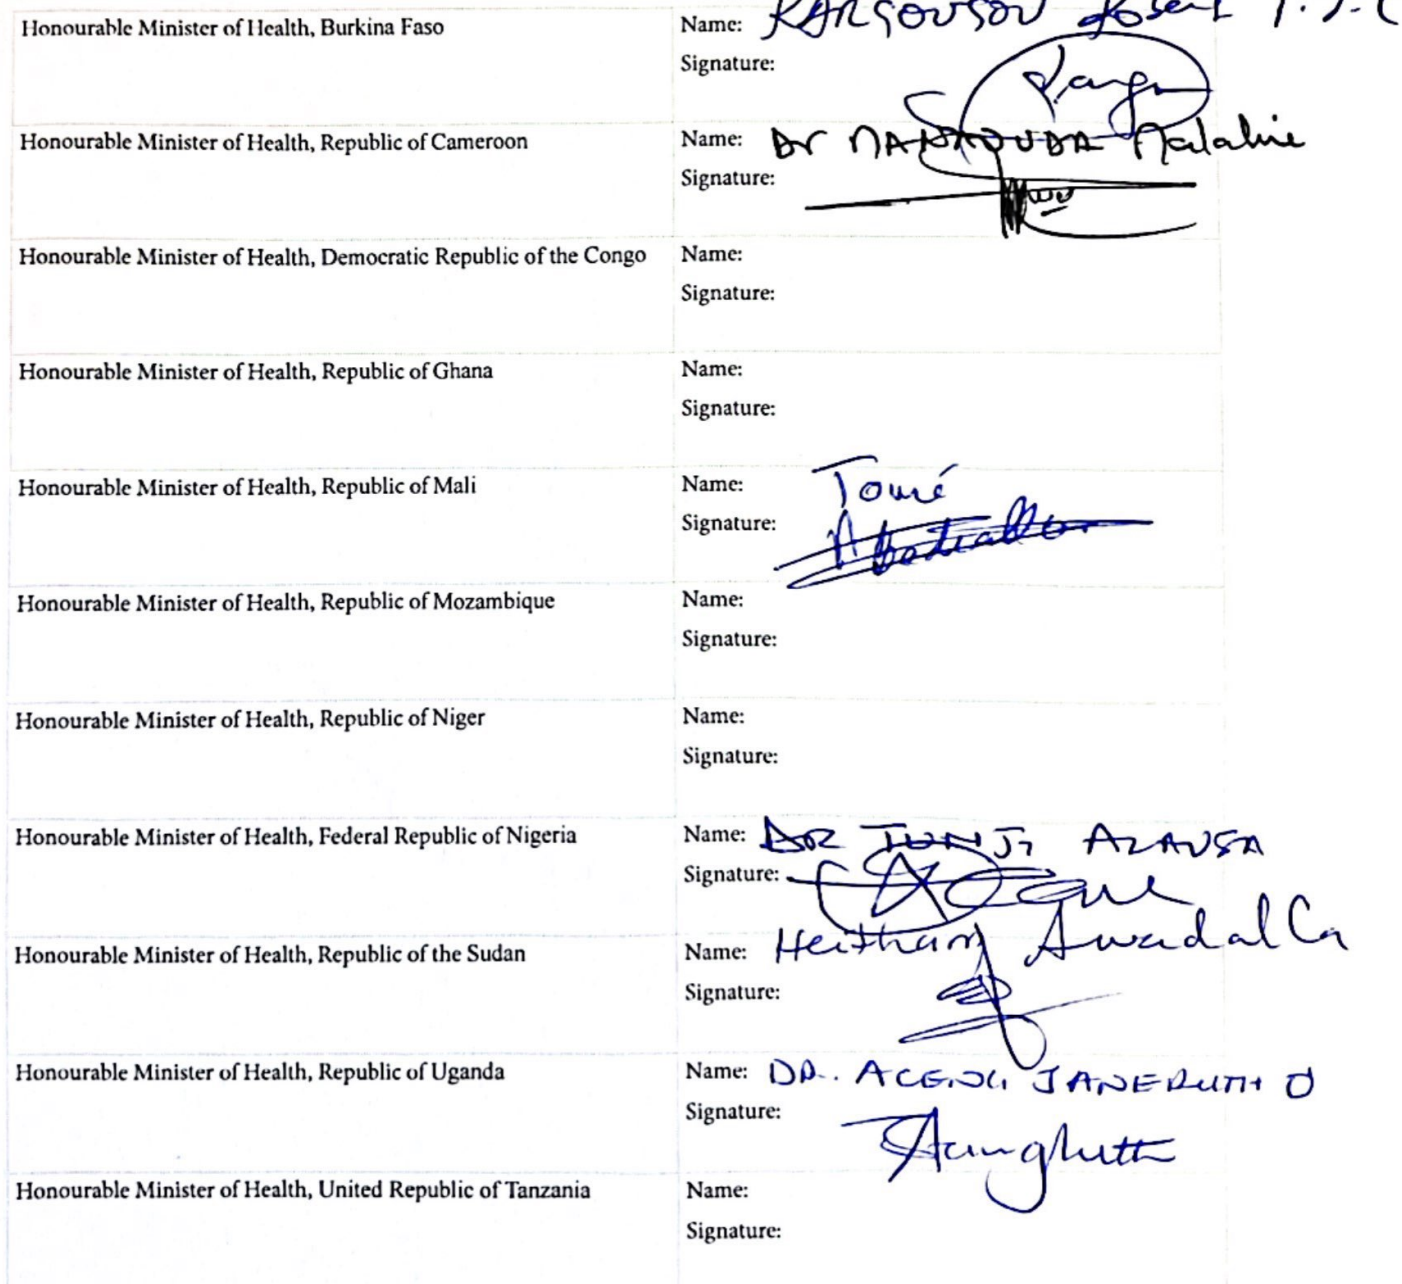 Honourable Minister of Health, Burkina Faso
Name: KARGOUGOU
Signature:
Honourable Minister of Health, Republic of Cameroon
Name: Dr MANAOUDA Malachie
Signature:
Honourable Minister of Health, Democratic Republic of the Congo
Name:
Signature:
Honourable Minister of Health, Republic of Ghana
Name:
Signature:
Honourable Minister of Health, Republic of Mali
Name: Touré
Signature:
Honourable Minister of Health, Republic of Mozambique
Name:
Signature:
Honourable Minister of Health, Republic of Niger
Name:
Signature:
Honourable Minister of Health, Federal Republic of Nigeria
Name: DR TUNJI ALAUSA
Signature:
Honourable Minister of Health, Republic of the Sudan
Name: Heitham Awadalla
Signature:
Honourable Minister of Health, Republic of Uganda
Name: DR. ACENG JANE RUTH O
Signature:
Honourable Minister of Health, United Republic of Tanzania
Name:
Signature: